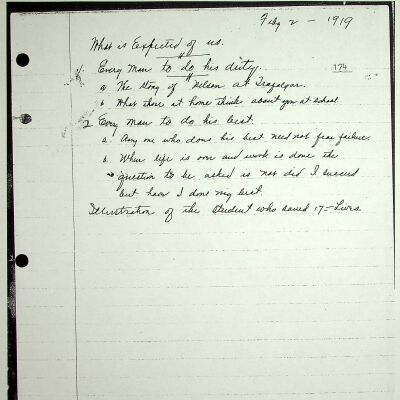 Feby 2 - 1919
What is Expected of us.
1. Every man to do his duty. 174
a The story of Nelson at Trafalgar.
b What those at home think about you at school
2 Every man to do his best.
a. Any one who does his best need not fear failure.
b. When life is over and work is done the
question to be asked is not did I succeed
but have I done my best.
Illustration of the student who saved 17 - Lives.